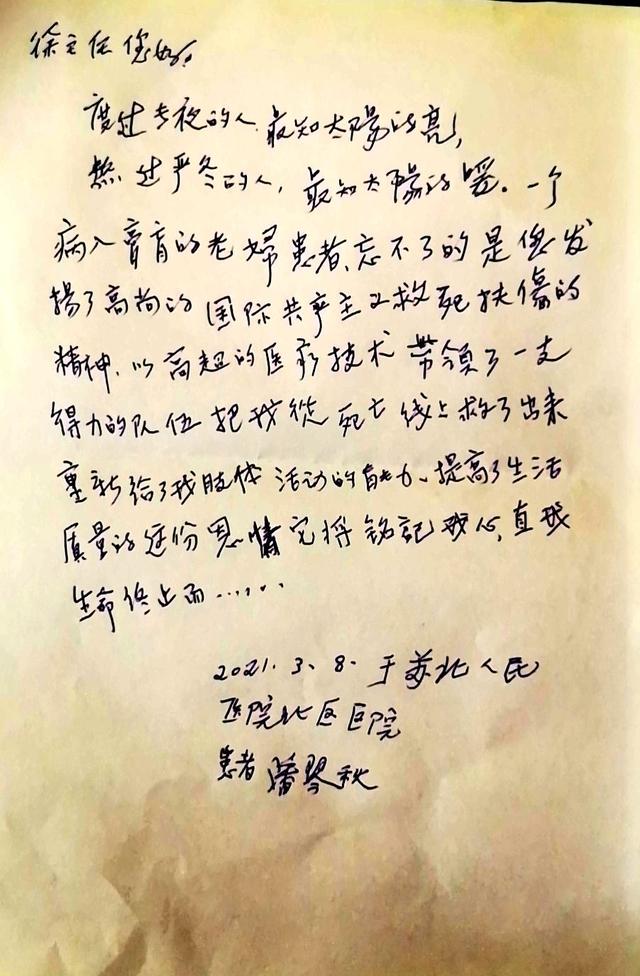 徐主任您好!
度过长夜的人,最知太阳的亮,
熬过严冬的人,最知太陽的暖。一个
病入膏肓的老婦患者、忘不了的是您发
揚了高尚的国际共产主义救死扶傷的
精神、以高超的医疗技术帶領了一支
得力的队伍把我從死亡线上救了出来
重新给了我肢体活动的能力、提高了生活
质量的这份恩情它将铭記我心,直我
生命终止而......
2021.3.8.于苏北人民
医院北区医院
患者潘琴秋